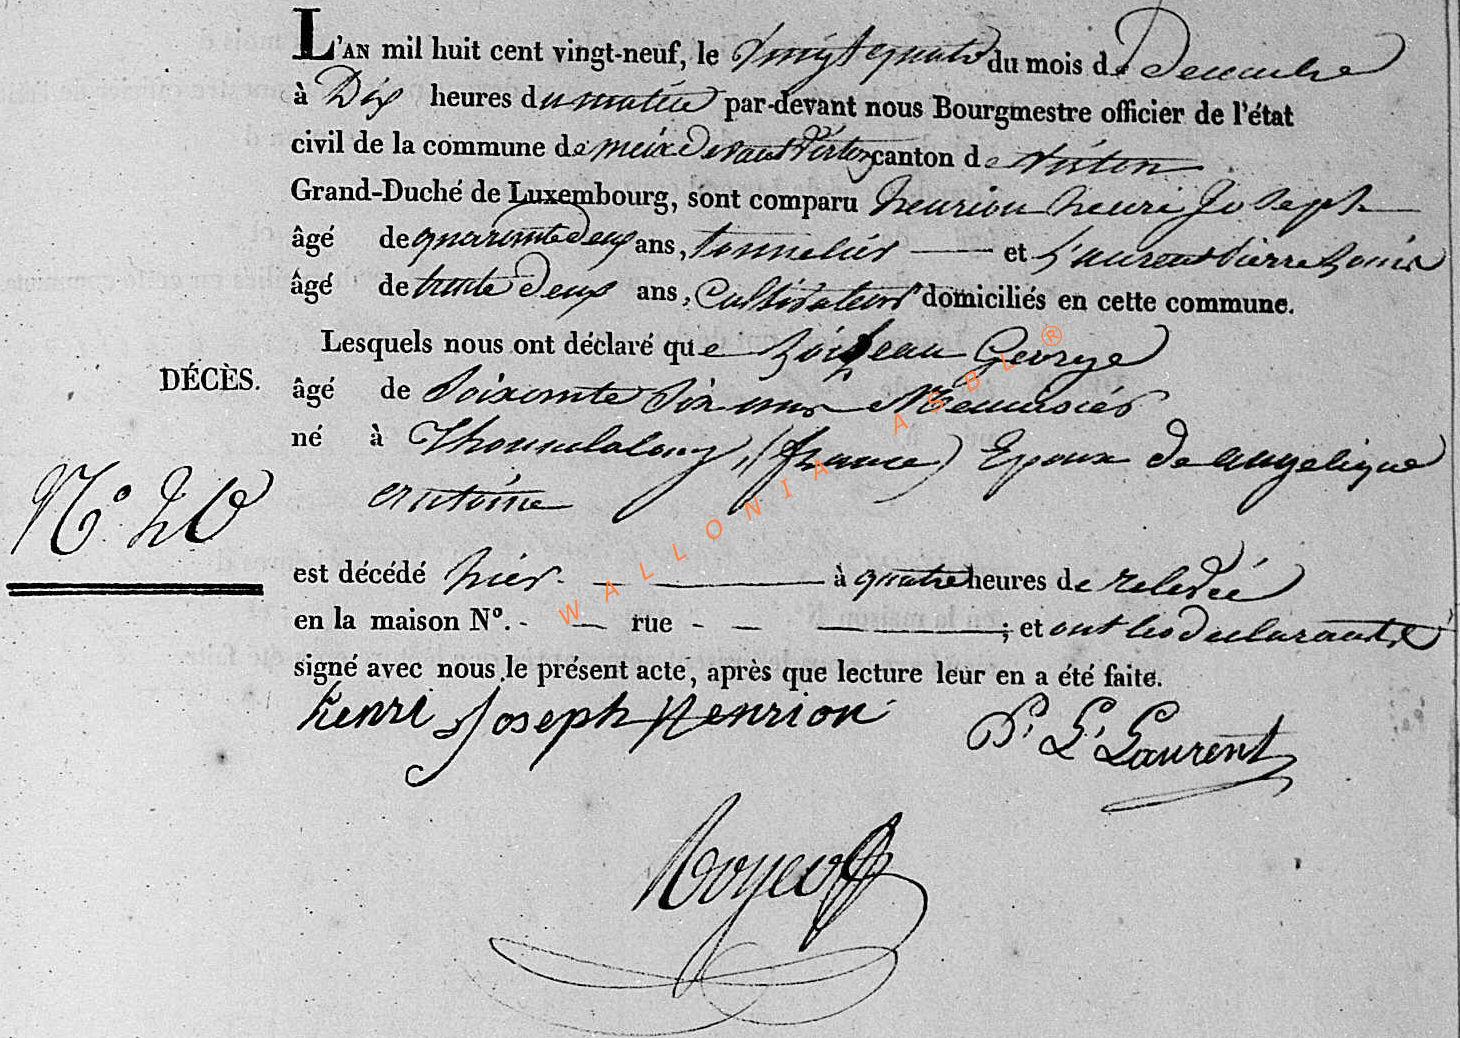 L'AN mil huit cent vingt-neuf, le vingt quatre du mois de Decembre
à Dix heures du matin par-devant nous Bourgmestre officier de l'état
civil de la commune de meix Devant Virton canton de Virton
Grand-Duché de Luxembourg, sont comparu henrion henri Joseph
âgé de quarante deux ans, tonnelier et Laurent Pierre Louis
âgé de trente Deux ans, Cultivateurs domiciliés en cette commune.
Lesquels nous ont déclaré que George
DÉCÈS.
âgé de Soixante Six ans Menusier
né à (france) Epoux de angelique
antoine
N° 20
est décédé hier à quatre heures de relevée
en la maison N°. rue ; et ont les declarants
signé avec nous le présent acte, après que lecture leur en a été faite.
henri Joseph Henrion
P. L. Laurent
WALLONIA ASBL ®